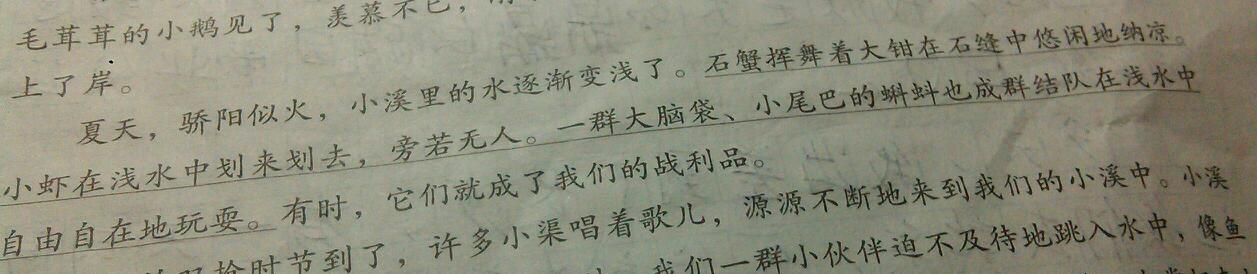 毛茸茸的小鹅见了，羡慕不已，
上了岸。
夏天，骄阳似火，小溪里的水逐渐变浅了。石蟹挥舞着大钳在石缝中悠闲地纳凉。
小虾在浅水中划来划去，旁若无人。一群大脑袋、小尾巴的蝌蚪也成群结队在浅水中
自由自在地玩耍。有时，它们就成了我们的战利品。
抢时节到了，许多小渠唱着歌儿，源源不断地来到我们的小溪中。小溪
我们一群小伙伴迫不及待地跳入水中，像鱼